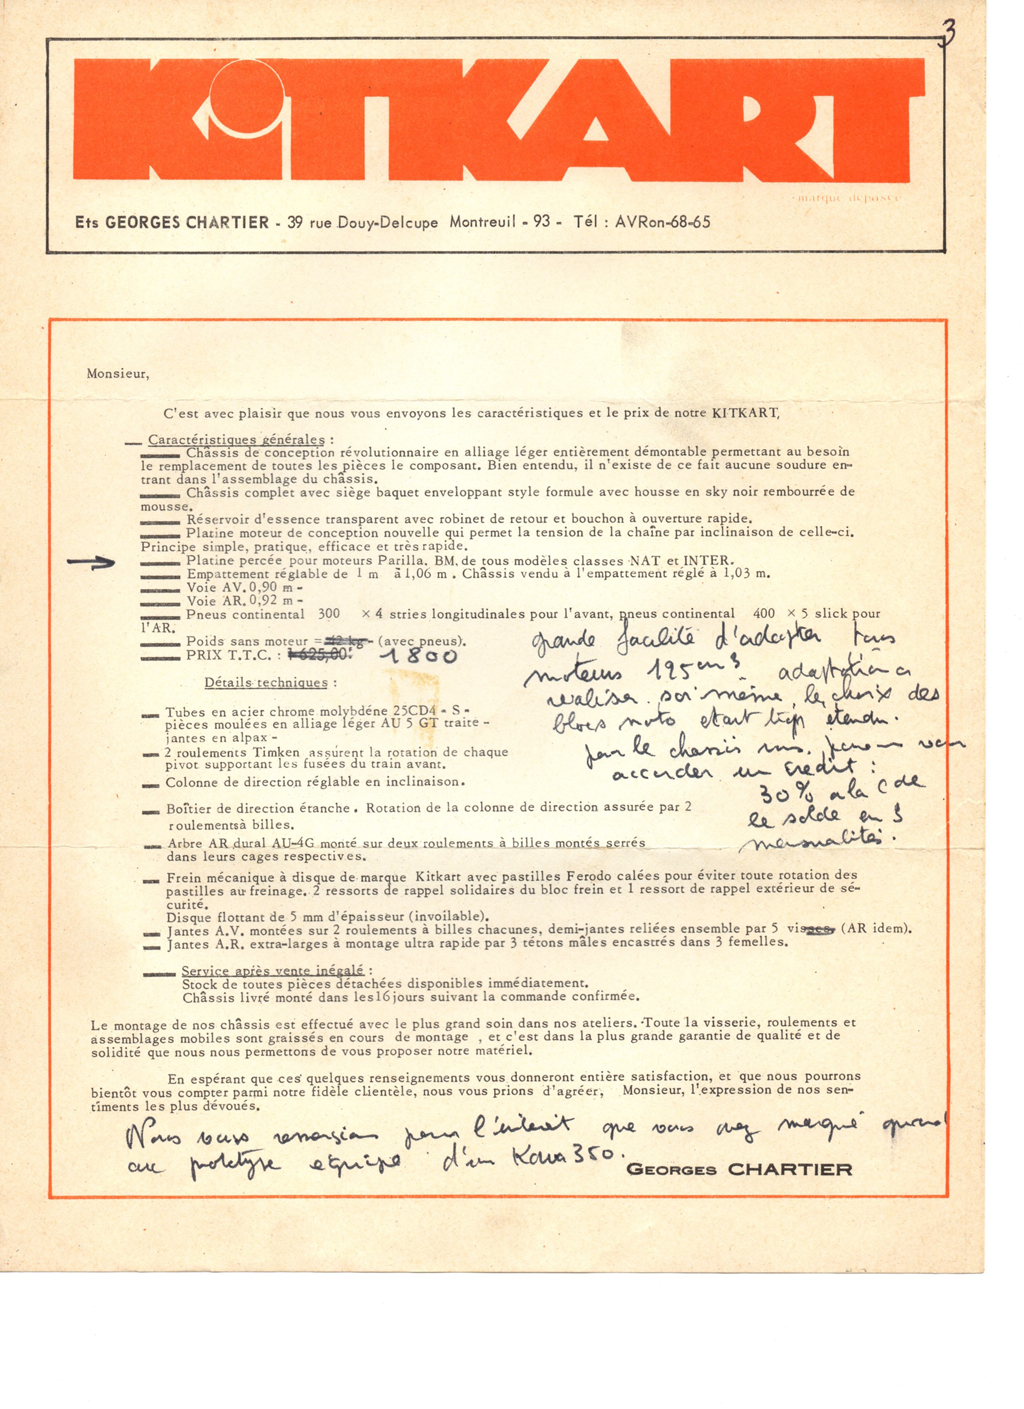 3
KiTKART
marque déposée
Ets GEORGES CHARTIER - 39 rue Douy-Delcupe Montreuil - 93 - Tél : AVRon-68-65
Monsieur,
C'est avec plaisir que nous vous envoyons les caractéristiques et le prix de notre KITKART,
Caractéristiques générales :
Châssis de conception révolutionnaire en alliage léger entièrement démontable permettant au besoin
le remplacement de toutes les pièces le composant. Bien entendu, il n'existe de ce fait aucune soudure en-
trant dans l'assemblage du châssis.
Châssis complet avec siège baquet enveloppant style formule avec housse en sky noir rembourrée de
mousse.
Réservoir d'essence transparent avec robinet de retour et bouchon à ouverture rapide.
Platine moteur de conception nouvelle qui permet la tension de la chaîne par inclinaison de celle-ci.
Principe simple, pratique, efficace et très rapide.
Platine percée pour moteurs Parilla. BM. de tous modèles classes NAT et INTER.
Empattement réglable de 1 m à 1,06 m . Châssis vendu à l'empattement réglé à 1,03 m.
Voie AV. 0,90 m -
Voie AR. 0,92 m -
Pneus continental 300 x 4 stries longitudinales pour l'avant, pneus continental 400 x 5 slick pour
l'AR.
Poids sans moteur = 42 kg - (avec pneus).
PRIX T.T.C. : 1 625,00 1800
grande facilité d'adapter tous
moteurs 125 cm3 adaptation a
realiser soi même, le choix des
blocs moto etant trop étendu.
pour le chassis nus. pouvons vous
accorder un credit :
30% a la Cde
le solde en 3
mensualités.
Détails techniques :
Tubes en acier chrome molybdéne 25CD4 - S -
pièces moulées en alliage léger AU 5 GT traite -
jantes en alpax -
2 roulements Timken assurent la rotation de chaque
pivot supportant les fusées du train avant.
Colonne de direction réglable en inclinaison.
Boîtier de direction étanche . Rotation de la colonne de direction assurée par 2
roulementsà billes.
Arbre AR dural AU-4G monté sur deux roulements à billes montés serrés
dans leurs cages respectives.
Frein mécanique à disque de marque Kitkart avec pastilles Ferodo calées pour éviter toute rotation des
pastilles au freinage. 2 ressorts de rappel solidaires du bloc frein et 1 ressort de rappel extérieur de sé-
curité.
Disque flottant de 5 mm d'épaisseur (invoilable).
Jantes A.V. montées sur 2 roulements à billes chacunes, demi-jantes reliées ensemble par 5 vis (AR idem).
Jantes A.R. extra-larges à montage ultra rapide par 3 tétons mâles encastrés dans 3 femelles.
Service après vente inégalé :
Stock de toutes pièces détachées disponibles immédiatement.
Châssis livré monté dans les 16 jours suivant la commande confirmée.
Le montage de nos châssis est effectué avec le plus grand soin dans nos ateliers. Toute la visserie, roulements et
assemblages mobiles sont graissés en cours de montage , et c'est dans la plus grande garantie de qualité et de
solidité que nous nous permettons de vous proposer notre matériel.
En espérant que ces quelques renseignements vous donneront entière satisfaction, et que nous pourrons
bientôt vous compter parmi notre fidèle clientèle, nous vous prions d'agréer, Monsieur, l'expression de nos sen-
timents les plus dévoués.
Nous vous remercions pour l'intéret que vous avez marqué quand
au prototype equipé d'un Kawa 350.
GEORGES CHARTIER